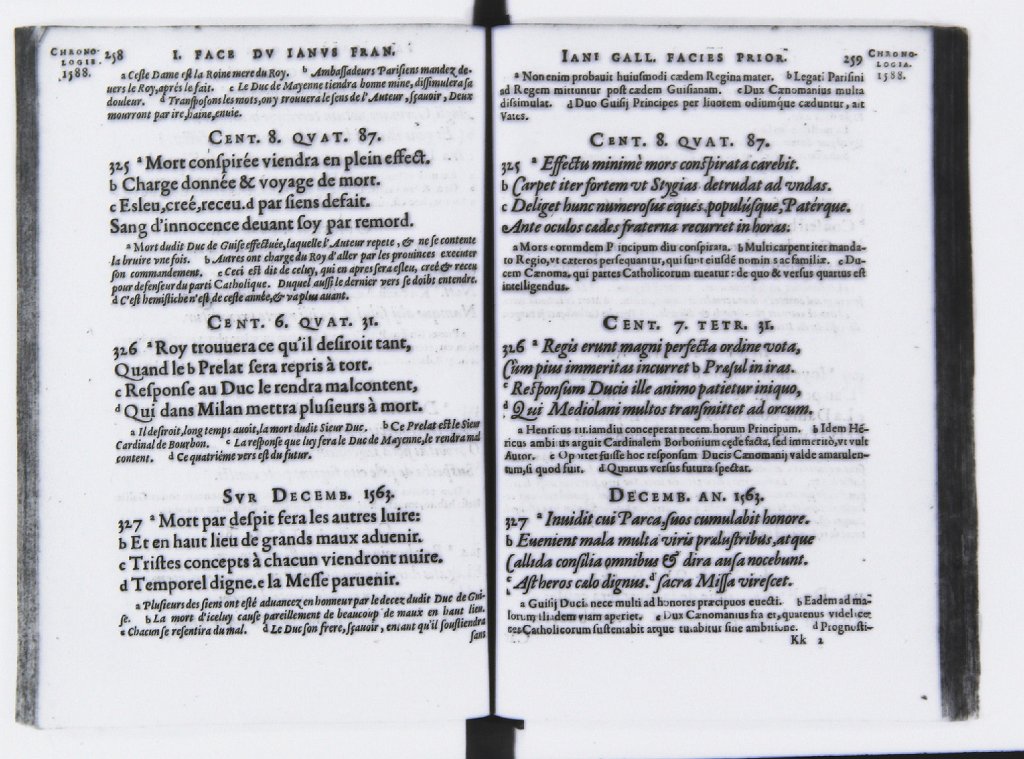 CHRONO-
LOGIE.
1588.
258 I. FACE DV IANVS FRAN.
a Ceste Dame est la Roine mere du Roy. b Ambassadeurs Parisiens mandez de-
uers le Roy, aprés le fait. c Le Duc de Mayenne tiendra bonne mine, dissimulera sa
douleur. d Transposons les mots, on y trouuera le sens de l'Auteur, sçauoir, Deux
mourront par ire, haine, enuie.
CENT. 8. QVAT. 87.
325 a Mort conspirée viendra en plein effect.
b Charge donnée & voyage de mort.
c Esleu, creé, receu. d par siens defait.
Sang d'innocence deuant soy par remord.
a Mort dudit Duc de Guise effectuée, laquelle l'Auteur repete, & ne se contente
la bruire vne fois. b Autres ont charge du Roy d'aller par les prouinces executer
son commandement. c Ceci est dit de celuy, qui en apres sera esleu, creé & receu
pour defenseur du parti Catholique. Duquel aussi le dernier vers se doibt entendre.
d C'est hemistiche n'est de ceste année, & va plus auant.
CENT. 6. QVAT. 31.
326 a Roy trouuera ce qu'il desiroit tant,
Quand le b Prelat sera repris à tort.
c Response au Duc le rendra malcontent,
d Qui dans Milan mettra plusieurs à mort.
a Il desiroit, long temps auoit, la mort dudit Sieur Duc. b Ce Prelat est le Sieur
Cardinal de Bourbon. c La response que luy fera le Duc de Mayenne, le rendra mal
content. d Ce quatriéme vers est du futur.
SVR DECEMB. 1563.
327 a Mort par despit fera les autres luire:
b Et en haut lieu de grands maux aduenir.
c Tristes concepts à chacun viendront nuire.
d Temporel digne. e la Messe paruenir.
a Plusieurs des siens ont esté aduancez en honneur par le decez dudit Duc de Gui-
se. b La mort d'iceluy cause pareillement de beaucoup de maux en haut lieu.
c Chacun se resentira du mal. d Le Duc son frere, sçauoir, entant qu'il soustiendra
sans
IANI GALL. FACIES PRIOR. 259
CHRONO-
LOGIA.
1588.
a Non enim probauit huiusmodi cædem Regina mater. b Legati Parisini
ad Regem mittuntur post cædem Guisianam. c Dux Cænomanius multa
dissimulat. d Duo Guisij Principes per liuorem odiumque cæduntur, ait
Vates.
CENT. 8. QVAT. 87.
325 a Effectu minimè mors conspirata carebit.
b Carpet iter fortem vt Stygias detrudat ad vndas.
c Deliget hunc numerosus eques, populúsque, Patérque.
Ante oculos cades fraterna recurret in horas.
a Mors eorumdem Principum diu conspirata. b Multi carpent iter manda-
to Regio, vt cæteros persequantur, qui sunt eiusdē nominis ac familiæ. c Du-
cem Cænoma. qui partes Catholicorum tueatur: de quo & versus quartus est
intelligendus.
CENT. 7. TETR. 31.
326 a Regis erunt magni perfecta ordine vota,
Cùm pius immeritas incurret b Præsul in iras.
c Responsum Ducis ille animo patietur iniquo,
d Qui Mediolani multos transmittet ad orcum.
a Henricus III. iamdiu conceperat necem horum Principum. b Idem Hē-
ricus ambitus arguit Cardinalem Borbonium cęde facta, sed immeritò, vt vult
Autor. c Oportet fuisse hoc responsum Ducis Cænomanij valde amarulen-
tum, si quod fuit. d Quartus versus futura spectat.
DECEMB. AN. 1563.
327 a Inuidit cui Parca, suos cumulabit honore.
b Euenient mala multa viris prælustribus, atque
Callida consilia omnibus & dira ausa nocebunt.
c Ast heros calo dignus. d sacra Missa virescet.
a Guisij Ducis nece multi ad honores præcipuos euecti. b Eadem ad ma-
lorum iliadem viam aperiet. c Dux Cænomanius frater, quatenus videlicet
res Catholicorum sustentabit atque turabitur sine ambitione. d Prognosti-
Kk 2